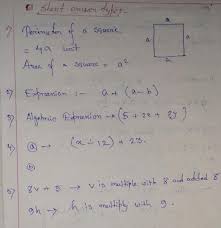 ① Short answer type:-
1) Perimeter of a square
= 4a unit
Area of a square = a²
a
a
a
a
2) Expression :- a + (a - b)
3) Algebric Expression → (5 + 2x + 8y)
4) (a) → (x - 12) + 23.
(b)
5) 8v + 8 → v is multiple with 8 and added 8
9h → h is multiply with 9.